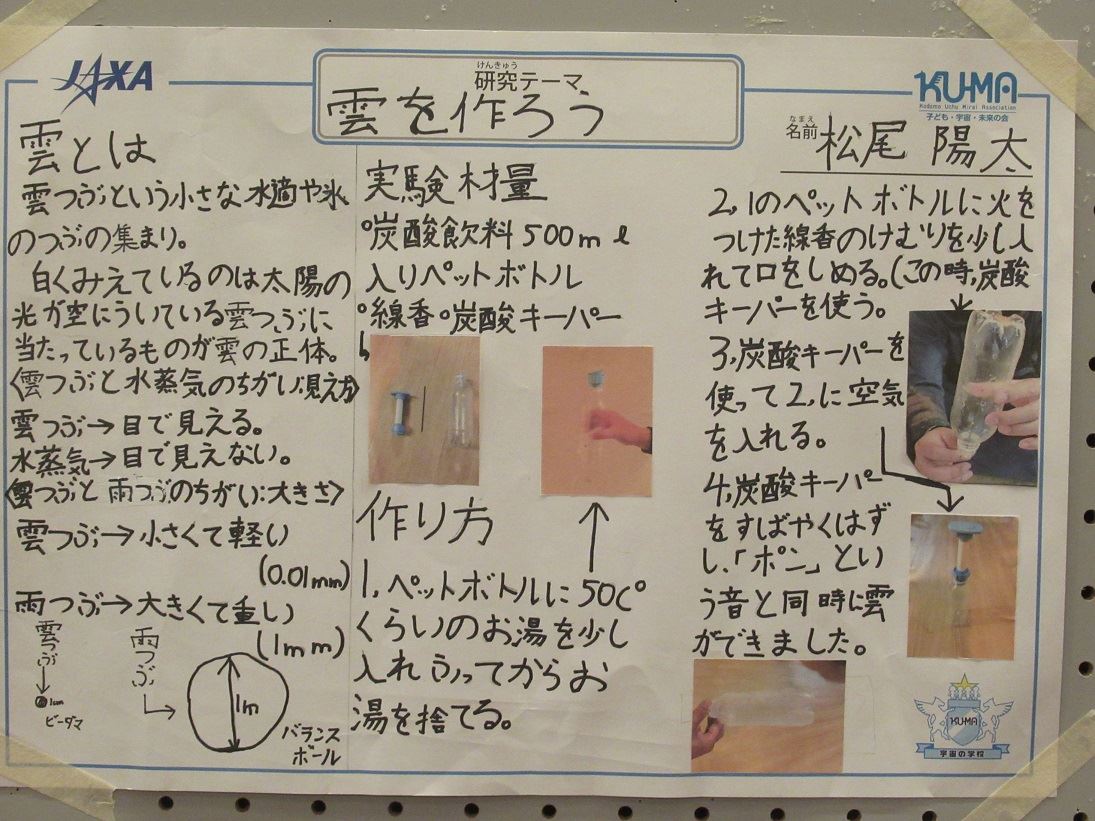 JAXA
けんきゅう
研究テーマ
雲を作ろう
KU-MA
Kodomo Uchu Mirai Association
子ども・宇宙・未来の会
なまえ
名前 松尾 陽太
雲とは
雲つぶという小さな水適や氷
のつぶの集まり。
白くみえているのは太陽の
光が空にういている雲つぶに
当たっているものが雲の正体。
〈雲つぶと水蒸気のちがい:見え方〉
雲つぶ→目で見える。
水蒸気→目で見えない。
〈雲つぶと雨つぶのちがい:大きさ〉
雲つぶ→小さくて軽い
(0.01mm)
雨つぶ→大きくて重い
(1mm)
雲つぶ
1cm
ビーダマ
雨つぶ
1m
バランス
ボール
実験材量
°炭酸飲料500mℓ
入りペットボトル
°線香°炭酸キーパー
作り方
1,ペットボトルに50C°
くらいのお湯を少し
入れふってからお
湯を捨てる。
2,1のペットボトルに火を
つけた線香のけむりを少し入
れて口をしめる。(この時,炭酸
キーパーを使う。
3,炭酸キーパーを
使って2,に空気
を入れる。
4,炭酸キーパー
をすばやくはず
し、「ポン」とい
う音と同時に雲
ができました。
KU-MA
宇宙の学校